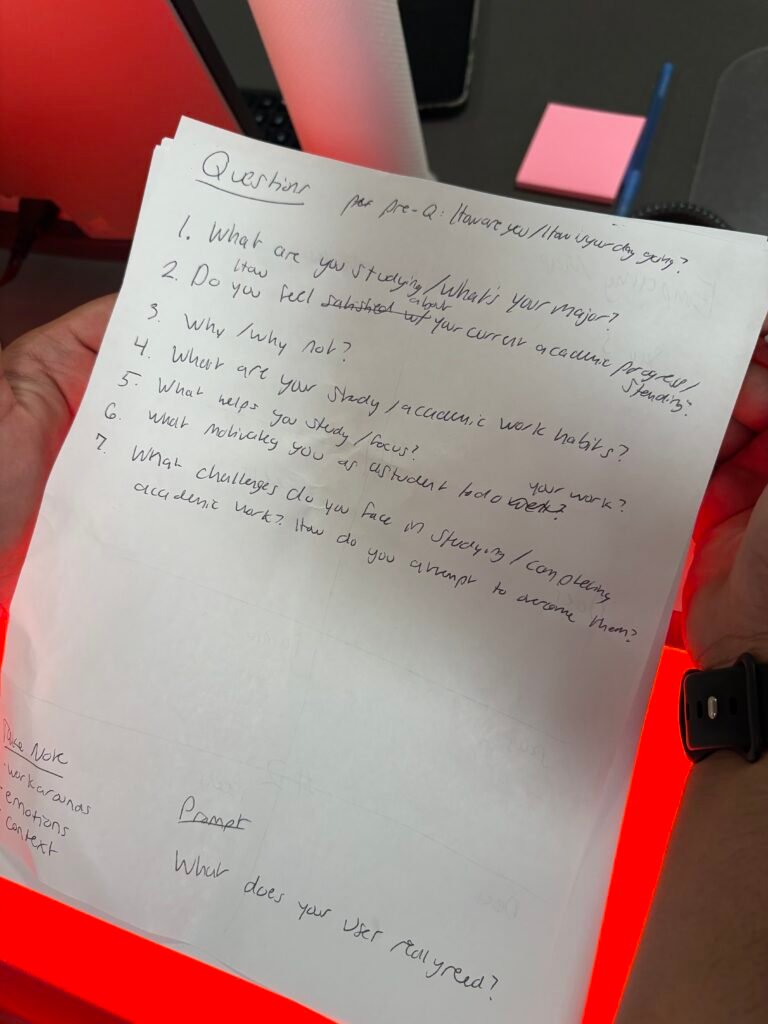 Questions
pre-Q: How are you/How is your day going?
1. What are you studying/what's your major?
2. Do How you feel satisfied w/ about your current academic progress/
standing?
3. Why/why not?
4. What are your study/academic work habits?
5. What helps you study/focus?
6. What motivates you as a student to do work? your work?
7. What challenges do you face in studying/completing
academic work? How do you attempt to overcome them?
Take Note
- workarounds
- emotions
- context
Prompt
What does your user really need?